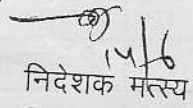 14/6
निदेशक मत्स्य